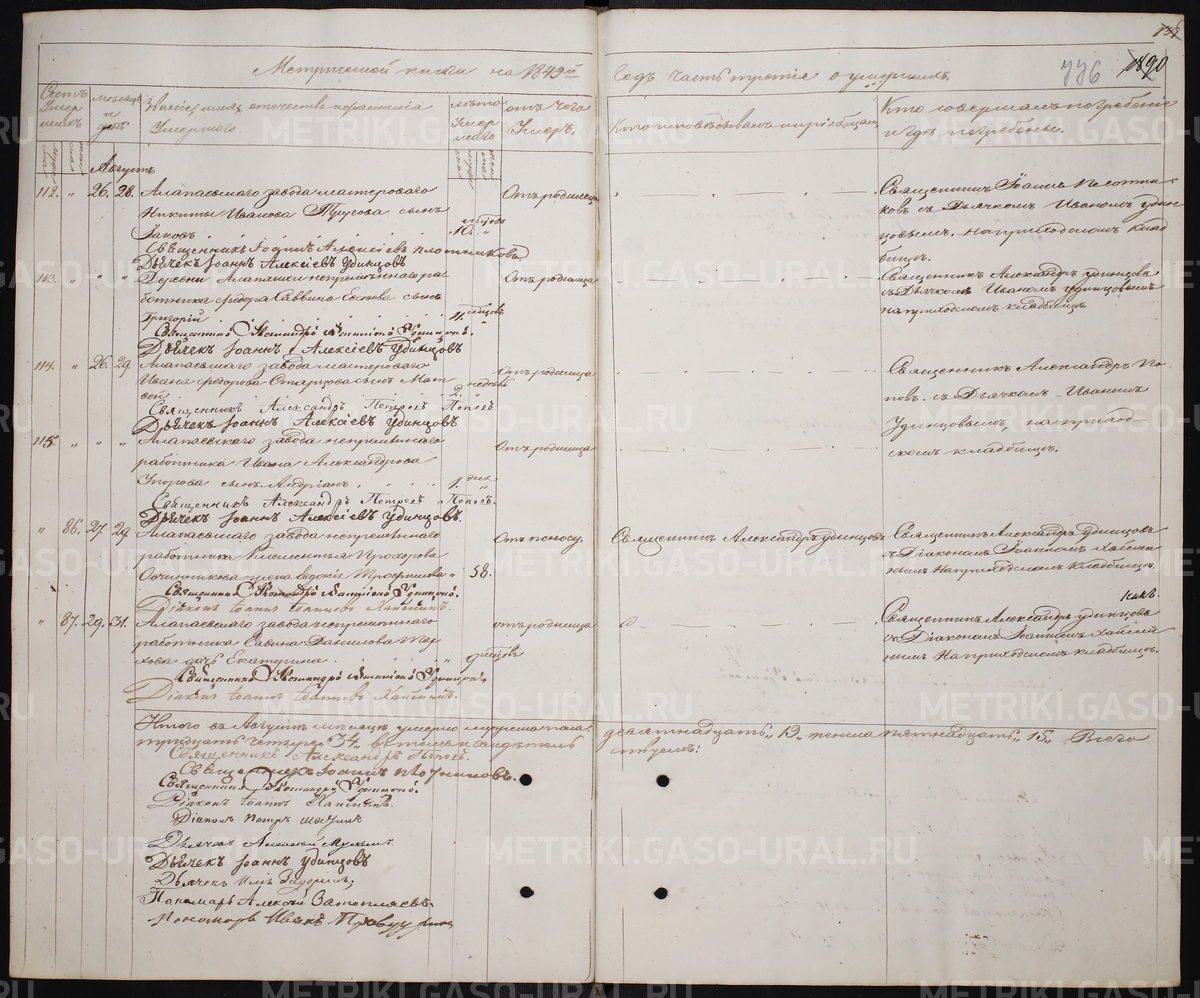 Метрической книги на 1849й
годъ часть третія о умершихъ
776
1890
Счетъ умершихъ
Мѣсяцъ и день
Званіе, имя, отечество и фамилія умершаго.
Лѣта умершаго
Отъ чего умеръ.
Кто исповѣдывалъ и пріобщалъ
Кто совершалъ погребеніе и гдѣ погребены.
Августъ
112. " 26. 28. Алапаевскаго завода мастероваго
Никиты Иванова сынъ
Іаковъ 10. мѣсяцовъ
Отъ родимца
Священникъ Іоаннъ Плотни-
ковъ съ Дьячкомъ Иваномъ Удин-
цовымъ. На приходскомъ клад-
бищѣ.
Священникъ Іоаннъ Алексіевъ Плотниковъ
Дьячекъ Іоаннъ Алексіевъ Удинцовъ
113. " " " Деревни Алапаихи непремѣннаго ра-
ботника Ѳедора Саввина сынъ
Григорій 11 мѣсяцовъ
Отъ родимца
Священникъ Александръ Удинцовъ
съ Дьячкомъ Иваномъ Удинцовымъ
на приходскомъ кладбищѣ.
Священникъ Александръ Удинцовъ.
Дьячекъ Іоаннъ Алексіевъ Удинцовъ
114. " 26. 29. Алапаевскаго завода мастероваго
Ивана Ѳедорова Старцова сынъ Мат-
вей 2. недѣли
Отъ родимца
Священникъ Александръ По-
повъ съ Дьячкомъ Иваномъ
Удинцовымъ, на приход-
скомъ кладбищѣ.
Священникъ Александръ Петровъ Поповъ
Дьячекъ Іоаннъ Алексіевъ Удинцовъ
115 " " " Алапаевскаго завода непремѣннаго
работника Ивана Александрова
сынъ Андріанъ 1. дня
Отъ родимца
Священникъ Александръ Петровъ Поповъ.
Дьячекъ Іоаннъ Алексіевъ Удинцовъ.
" 86. 27. 29. Алапаевскаго завода непремѣннаго
работника Климентія Прохорова
Овчинникова жена Евдокія Трофимова " 58.
Отъ поносу.
Священникъ Александръ Удинцовъ
Священникъ Александръ Удинцовъ
съ Діакономъ Іоанномъ
На приходскомъ кладбищѣ.
Священникъ Александръ Удинцовъ.
Діаконъ Іоаннъ Іоанновъ
" 87. 29. 31. Алапаевскаго завода непремѣннаго
работника Савина Данилова
дочь Екатерина " 9 мѣсяцовъ
отъ родимца
Священникъ Александръ Удинцовъ
съ Діакономъ Іоанномъ
На приходскомъ кладбищѣ.
Священникъ Александръ Удинцовъ
Діаконъ Іоаннъ Іоанновъ
Итого въ Августѣ мѣсяцѣ умерло мужеска пола
девятнадцать " 19 " женска пятнадцать " 15 " Всего
тридцать четыре " 34 " въ томъ и свидѣтель-
ствуемъ:
Священникъ Александръ Поповъ.
Священникъ Іоаннъ Плотниковъ.
Священникъ Александръ Удинцовъ.
Діаконъ Іоаннъ
Діаконъ Петръ
Дьячекъ Алексѣй
Дьячекъ Іоаннъ Удинцовъ
Дьячекъ Илія Задоринъ
Пономарь Алексѣй Затопляевъ
Пономарь Иванъ
METRIKI.GASO-URAL.RU